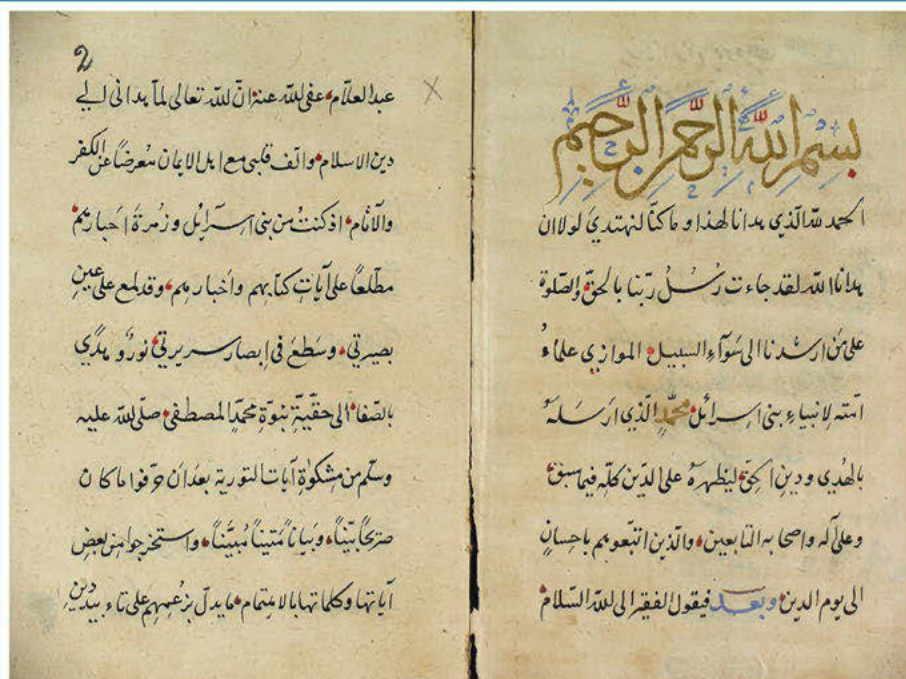 بسم الله الرحمن الرحيم
الحمد لله الذي هدانا لهذا وما كنا لنهتدي لولا ان
هدانا الله لقد جاءت رسل ربنا بالحق والصلوة
على من ارشدنا الى سوآء السبيل الموازي علماء
امته لانبياء بنى اسرائل محمد الذي ارسله
بالهدي ودين الحق ليظهره على الدين كله فيما سبق
وعلى آله واصحابه التابعين والذين اتبعوهم باحسان
الى يوم الدين وبعد فيقول الفقير الى الله السلام
2
عبد العلام عفى الله عنه ان الله تعالى لما هدانى الى
دين الاسلام والف قلبى مع اهل الايمان معرضا عن الكفر
والآثام اذ كنت من بنى اسرآئل وزمرة احبارهم
مطلعا على آيات كتابهم واخبارهم وقد لمع على عين
بصيرتي وسطع فى ابصار سريرتي نور وهدي
بالصفا الى حقية نبوة محمد المصطفى صلى الله عليه
وسلم من مشكوة آيات التورية بعد ان حرفوا ما كان
صريحا بينا وبيانا متينا مبينا واستخرجوا من بعض
آياتها وكلماتها بالاهتمام ما يدل بزعمهم على تاءبيد دين